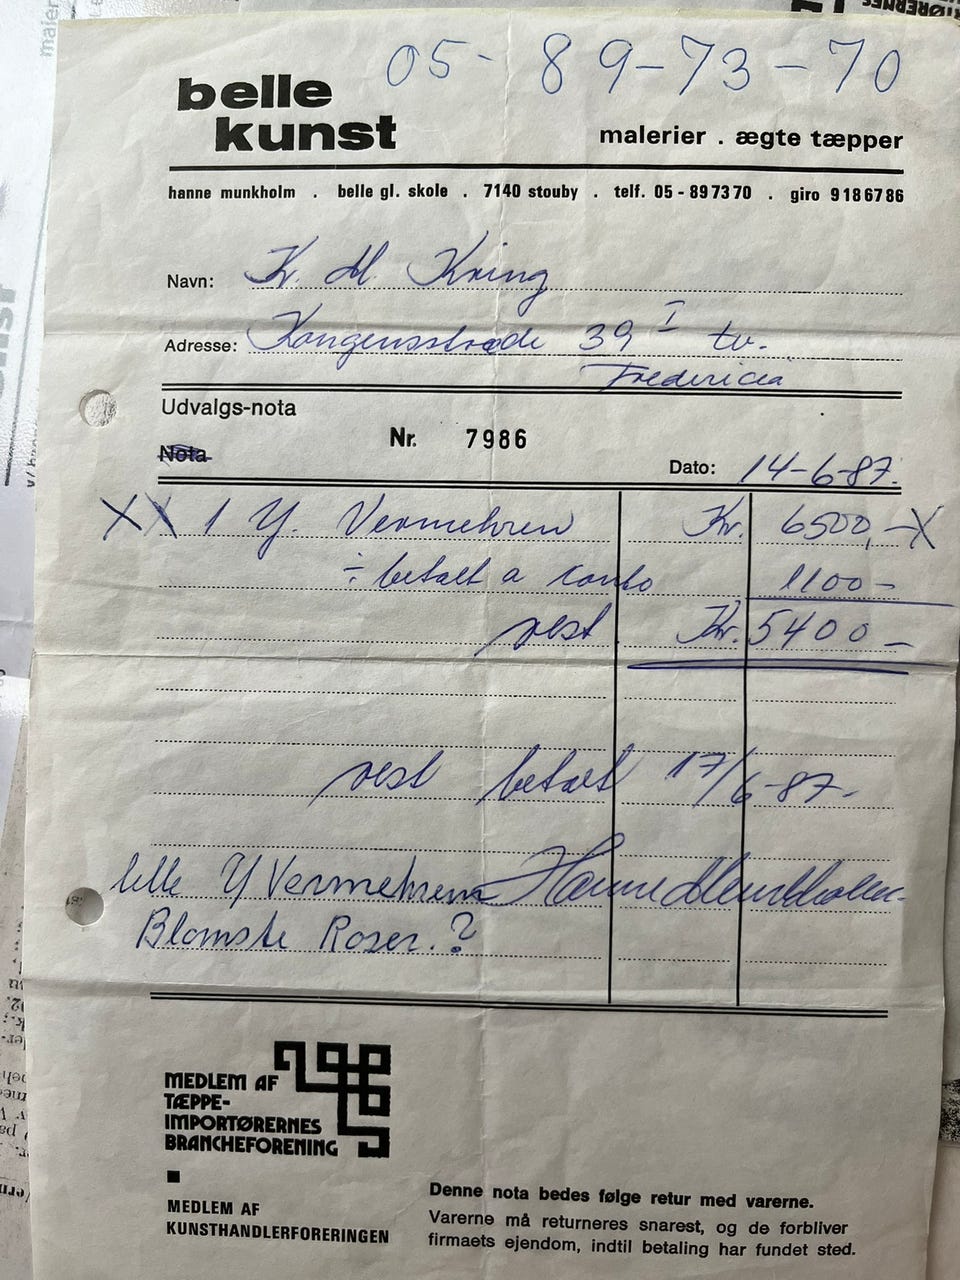 05-89-73-70
belle
kunst
malerier . ægte tæpper
hanne munkholm . belle gl. skole . 7140 stouby . telf. 05-897370 . giro 9186786
Navn: Kr. M. Kring
Adresse: Kongensstræde 39 I tv.
Fredericia
Udvalgs-nota
Nota
Nr. 7986
Dato: 14-6-87.
XX 1 Y. Vermehren Kr. 6500,- X
÷ betalt a conto 1100-
rest Kr. 5400-
rest betalt 17/6-87.
lille Y Vermehren Hanne Munkholm
Blomste Roser.?
MEDLEM AF
TÆPPE-
IMPORTØRERNES
BRANCHEFORENING
MEDLEM AF
KUNSTHANDLERFORERINGEN
Denne nota bedes følge retur med varerne.
Varerne må returneres snarest, og de forbliver
firmaets ejendom, indtil betaling har fundet sted.